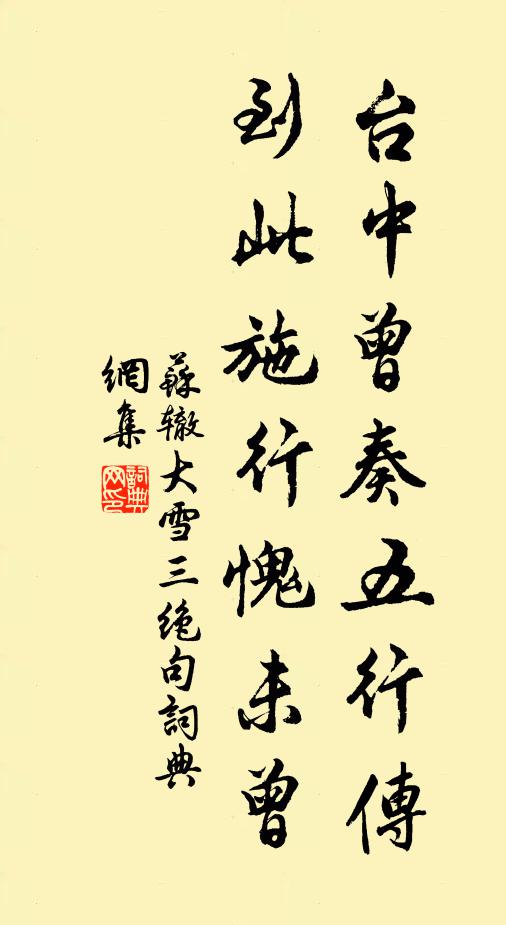 台中曾奏五行傳
到此施行愧未曾
蘇辙大雪三絶句詞典
網集
詞典网印